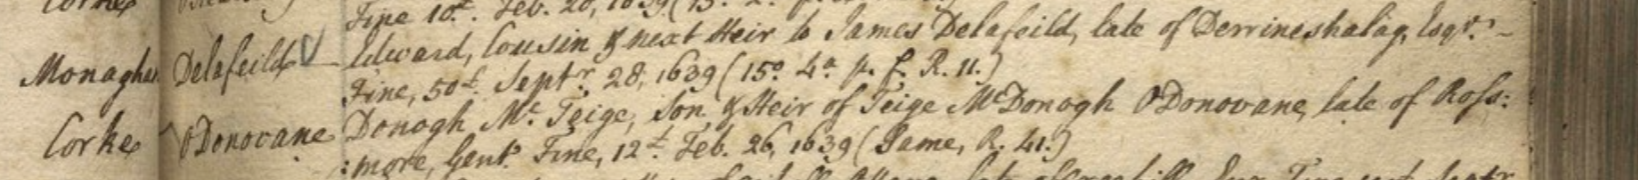 Corke
Fine 10£. Feb. 20, 1639 (15.
Monaghan Delafeild Edward, Cousin & next Heir to James Delafeild, late of Derrineshalag, Esqr. -
Fine, 50£. Septr. 28, 1639 (15o. 4a. p. f. R. 11.)
Corke O'Donovane Donogh Mc. Teige, Son & Heir of Teige McDonogh O'Donovane, late of Ross:
:more, Gent. Fine, 12£. Feb. 26, 1639 (Same, R. 41.)